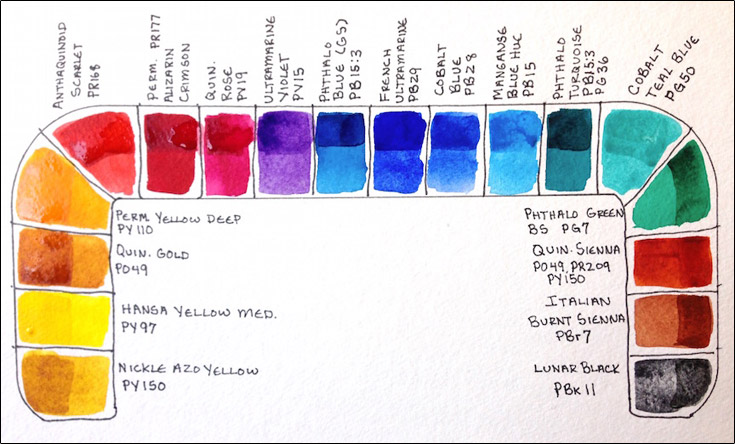 ANTHAQUINOID
SCARLET
PR168
PERM. PR177
ALIZARIN
CRIMSON
QUIN.
ROSE
PV19
ULTRAMARINE
VIOLET
PV15
PHTHALO
BLUE (GS)
PB15:3
FRENCH
ULTRAMARINE
PB29
COBALT
BLUE
PB28
MANGANSE
BLUE HUE
PB15
PHTHALO
TURQUOISE
PB15:3
PG36
COBALT
TEAL BLUE
PG50
PERM. YELLOW DEEP
PY110
QUIN. GOLD
PO49
HANSA YELLOW MED.
PY97
NICKLE AZO YELLOW
PY150
PHTHALO GREEN
BS PG7
QUIN. SIENNA
PO49, PR209
PY150
ITALIAN
BURNT SIENNA
PBr7
LUNAR BLACK
PBK11